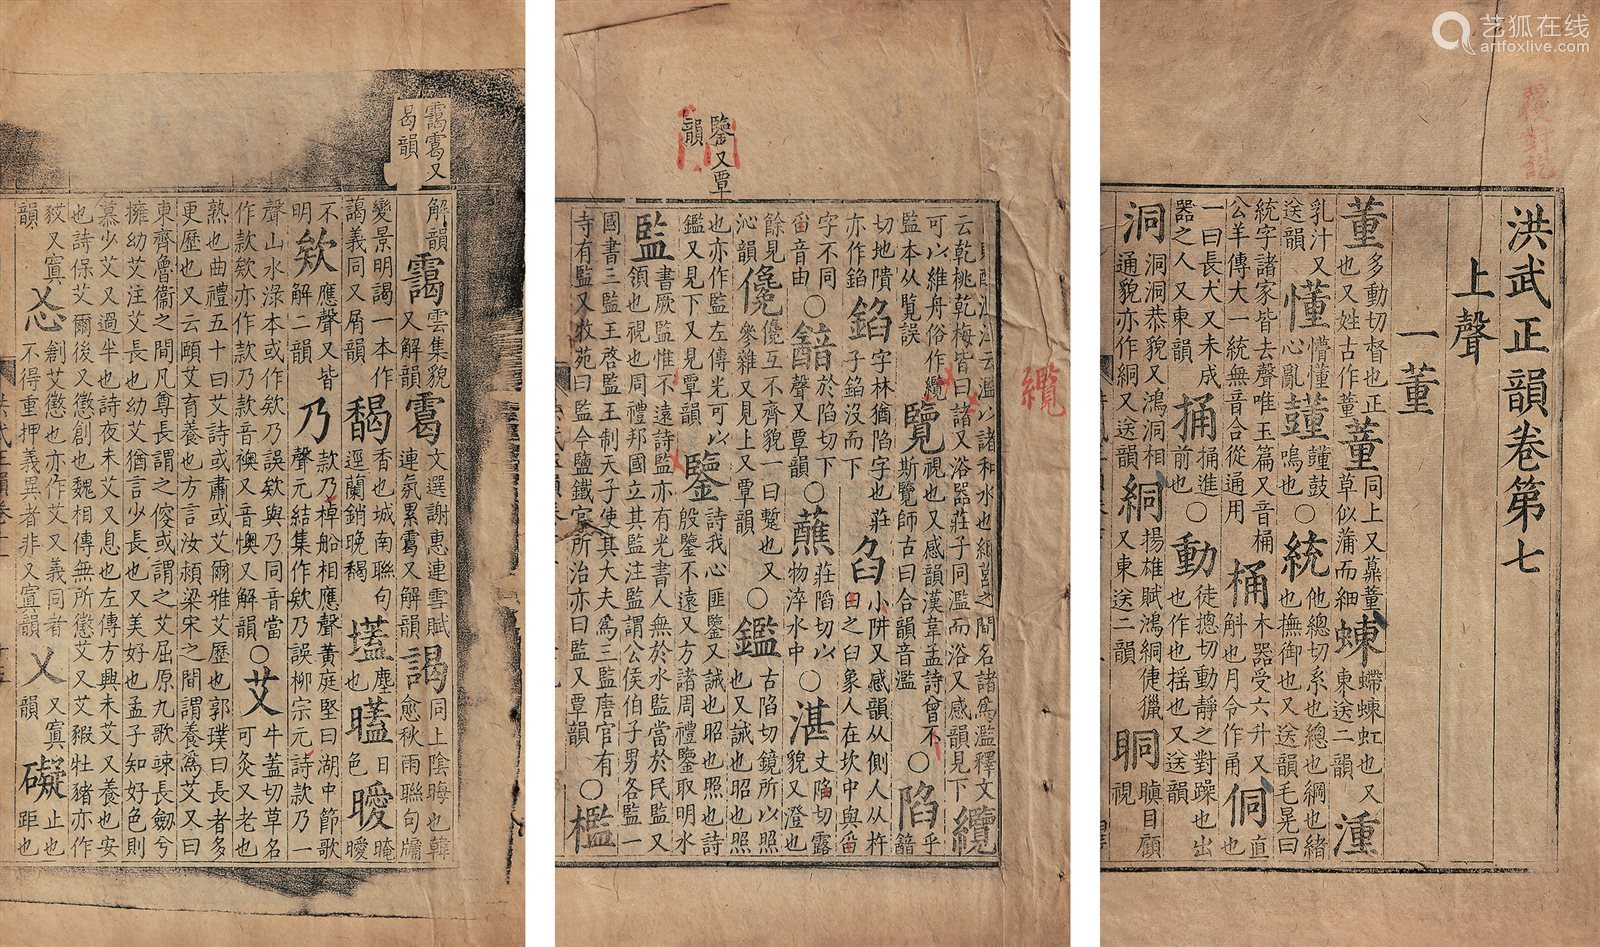 艺狐在线
artfoxlive.com
洪武正韻卷第七
上聲
一董
董多動切督也正
也又姓古作董
董同上又
草似蒲而細
蝀蝃蝀虹也又
東送二韻
湩乳汁又
送韻
懂懵懂
心亂
統他總切系也總也綱也緒
也撫御也又送韻毛晃曰
統字諸家皆去聲唯玉篇又音桶
公羊傳大一統無音合從通用
桶木器受六升又
斛也月令作甬
侗直
也
一曰長大又未成
器之人又東韻
捅捅進
前也
動徒摠切動靜之對躁也出
也作也搖也又送韻
洞洞洞恭貌又澒洞相
通貌亦作絅又送韻
揚雄賦鴻絅倢獵
又東送二韻
瞋目顧
視
鑒又覃
韻
纜
云乾桃乾梅皆曰諸又浴器莊子同濫而浴又感韻見下
纜
可以維舟俗作纜
覽視也又感韻漢韋孟詩曾不
斯覽師古曰合韻音濫
監本从覽誤
陷乎
切地隤
字林猶陷字也莊
子錎沒而下
臽小阱又感韻从側人从杵
臼之臼象人在坎中與臽
字不同
音由
於陷切下
聲又覃韻
蘸莊陷切以
物淬水中
湛丈陷切露
貌又澄也
餘見
沁韻
儳儳互不齊貌一曰蹔也又
參雜又見上又覃韻
鑑古陷切鏡所以照
也又誡也昭也照
也亦作監左傳光可以
鑑又見下又見覃韻
鑒詩我心匪鑒又誡也昭也照也詩
殷鑒不遠又方諸周禮鑒取明水
監書厥監惟不遠詩監亦有光書人無於水監當於民監又
領也視也周禮邦國立其監注監謂公侯伯子男各監一
國書三監王啓監王制天子使其大夫爲三監唐官有
寺有監又牧苑曰監今鹽鐵官所治亦曰監又覃韻
檻
靄靄又
曷韻
解韻
靄雲集貌
又解韻
文選謝惠連雪賦
連氛累靄又解韻
同上陰晦也韓
愈秋雨聯句牖
變景明謁一本作
謁義同又屑韻
香也城南聯句
逕蘭銷晚馤
壒塵
也
曀日晻
色
曖曖
不
明
欸應聲又皆
解二韻
乃款乃棹船相應聲黃庭堅曰湖中節歌
聲元結集作欸乃誤柳宗元詩款乃一
聲山水淥本或作欸乃誤欸與乃同音當
作款欸亦作款乃款音襖又音懊又解韻
艾牛蓋切草名
可灸又老也
熟也曲禮五十曰艾詩或肅或艾爾雅艾歷也郭璞曰長者多
更歷也又云頤艾育養也方言汝潁梁宋之間謂養爲艾又曰
東齊魯衞之間凡尊長謂之傁或謂之艾屈原九歌竦長劒兮
擁幼艾注艾長也幼艾猶言少長也又美好也孟子知好色則
慕少艾又過半也詩夜未艾又息也左傳方興未艾又養也安
也詩保艾爾後又懲創也魏相傳無所懲艾又艾豭牡豬亦作
又寘
韻
創艾懲也亦作艾又義同者
不得重押義異者非又寘韻
乂又寘
韻
礙止也
距也